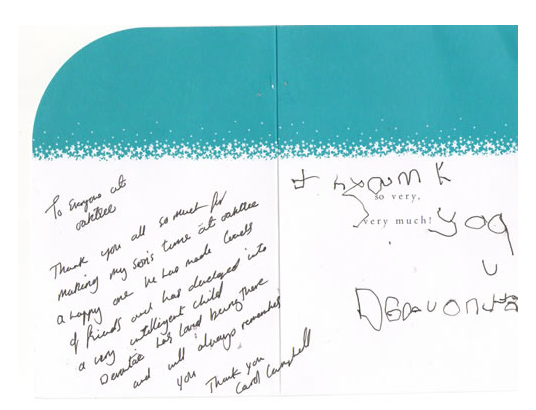 To Everyone at
oaktree
Thank you all so much for
making my son's time at oaktree
a happy one he has made
of friends and has developed into
a very intelligent child
has loved being there
and will always remember
you
Thank you
Carol Campbell
so very,
very much!
you